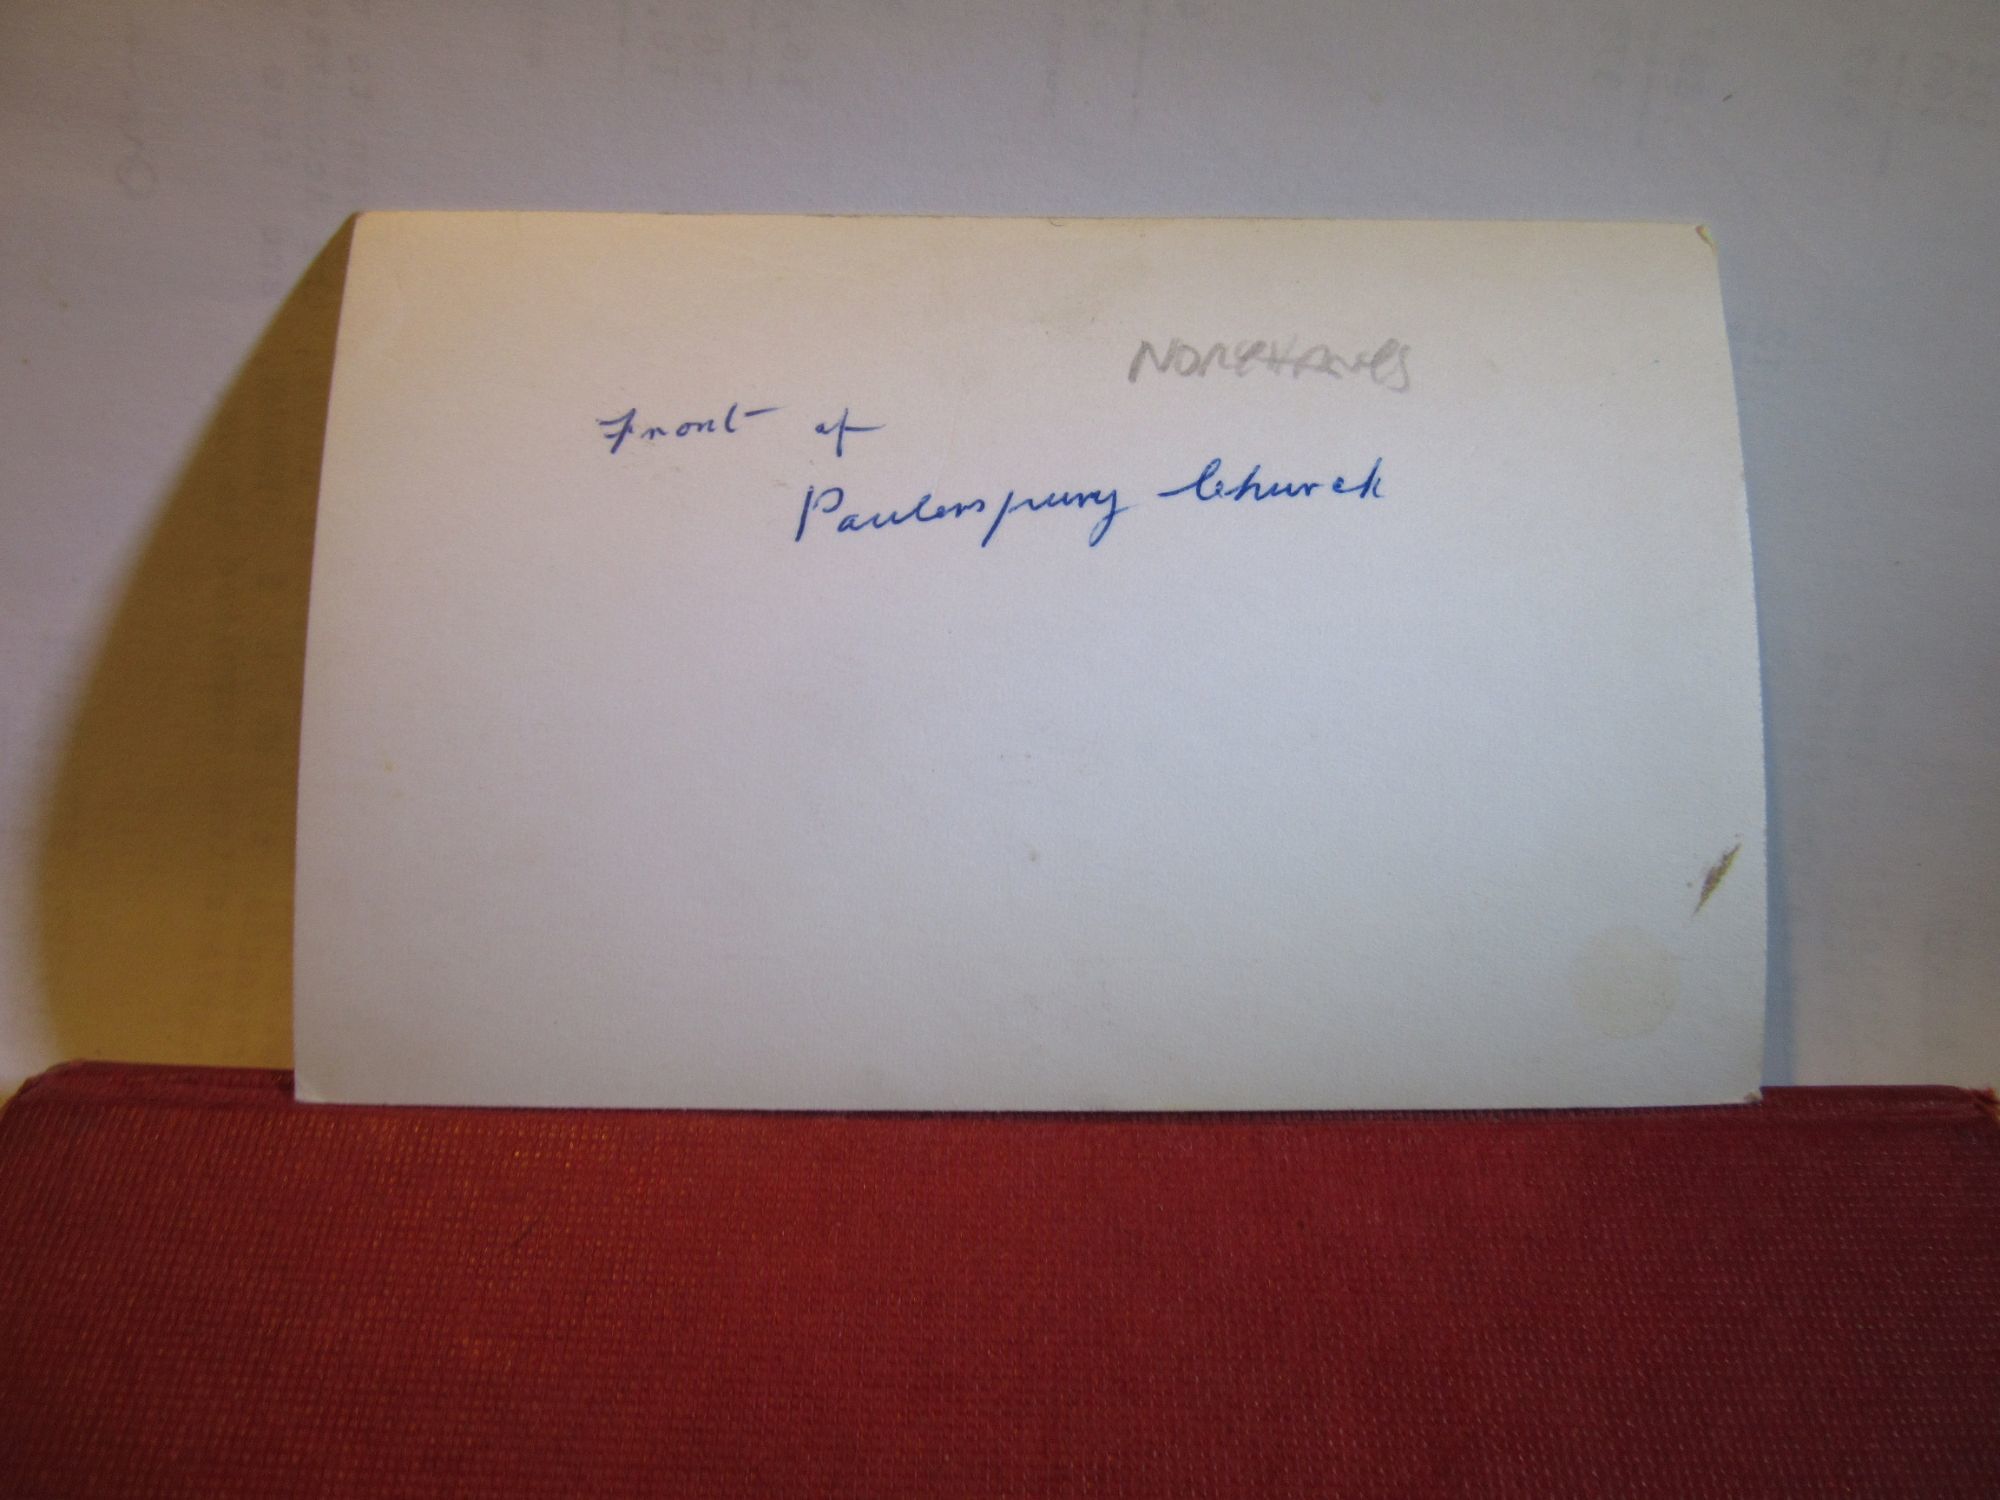 NORTHANTS
Front of
Paulerspury Church